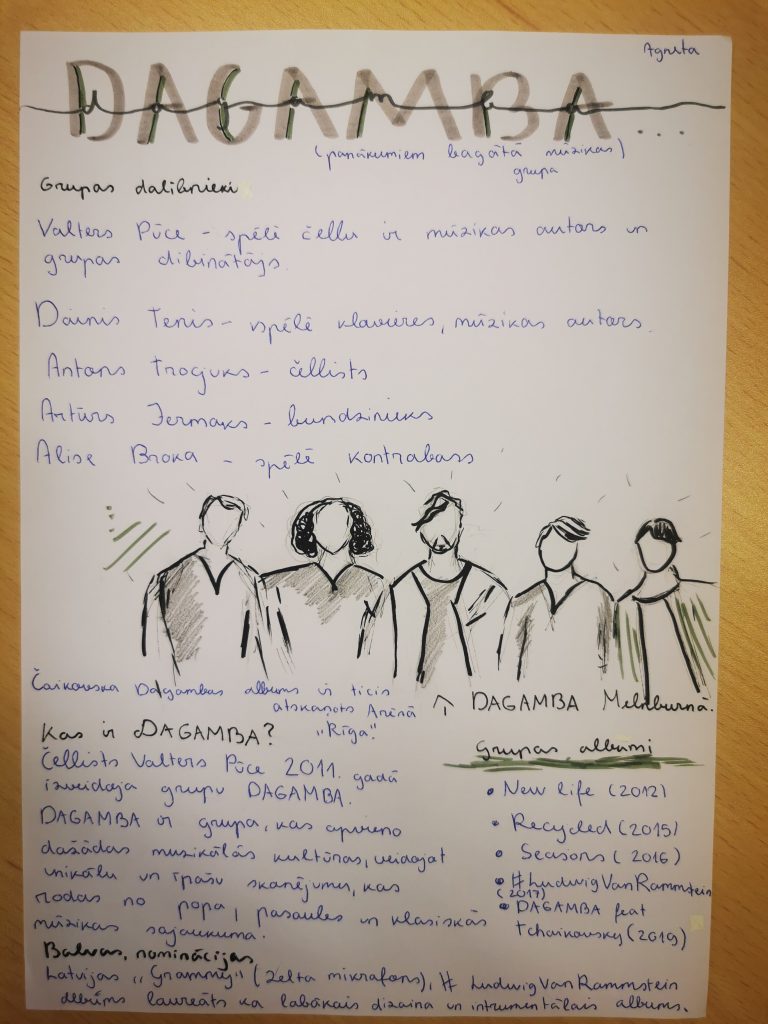 Agneta
DAGAMBA...
dagamba
(panākumiem bagātā mūzikas)
grupa
Grupas dalībnieki
Valters Pūce – spēlē čellu ir mūzikas autors un
grupas dibinātājs.
Dainis Tenis – spēlē klavieres, mūzikas autors.
Antons Trocjuks – čellists
Artūrs Jermaks – bundzinieks
Alise Broka – spēlē kontrabass
Čaikovska Dagambas albums ir ticis
atskaņots Arēnā
"Rīga".
↑ DAGAMBA Melnburnā.
Kas ir DAGAMBA?
Čellists Valters Pūce 2011. gadā
izveidoja grupu DAGAMBA.
DAGAMBA ir grupa, kas apvieno
dažādas muzikālās kultūras, veidojat
unikālu un īpašu skanējumu, kas
rodas no popa, pasaules un klasiskās
mūzikas sajaukuma.
Grupas albūmi
• New life (2012)
• Recycled (2015)
• Seasons (2016)
• #LudwigVanRammstein
(2017)
• DAGAMBA feat
Tchaikovsky (2019)
Balvas, nominācijas
Latvijas "Grammy" (Zelta mikrofons), # LudwigVanRammstein
albūms laureāts ka labākais dizaina un intrumentālais albums.